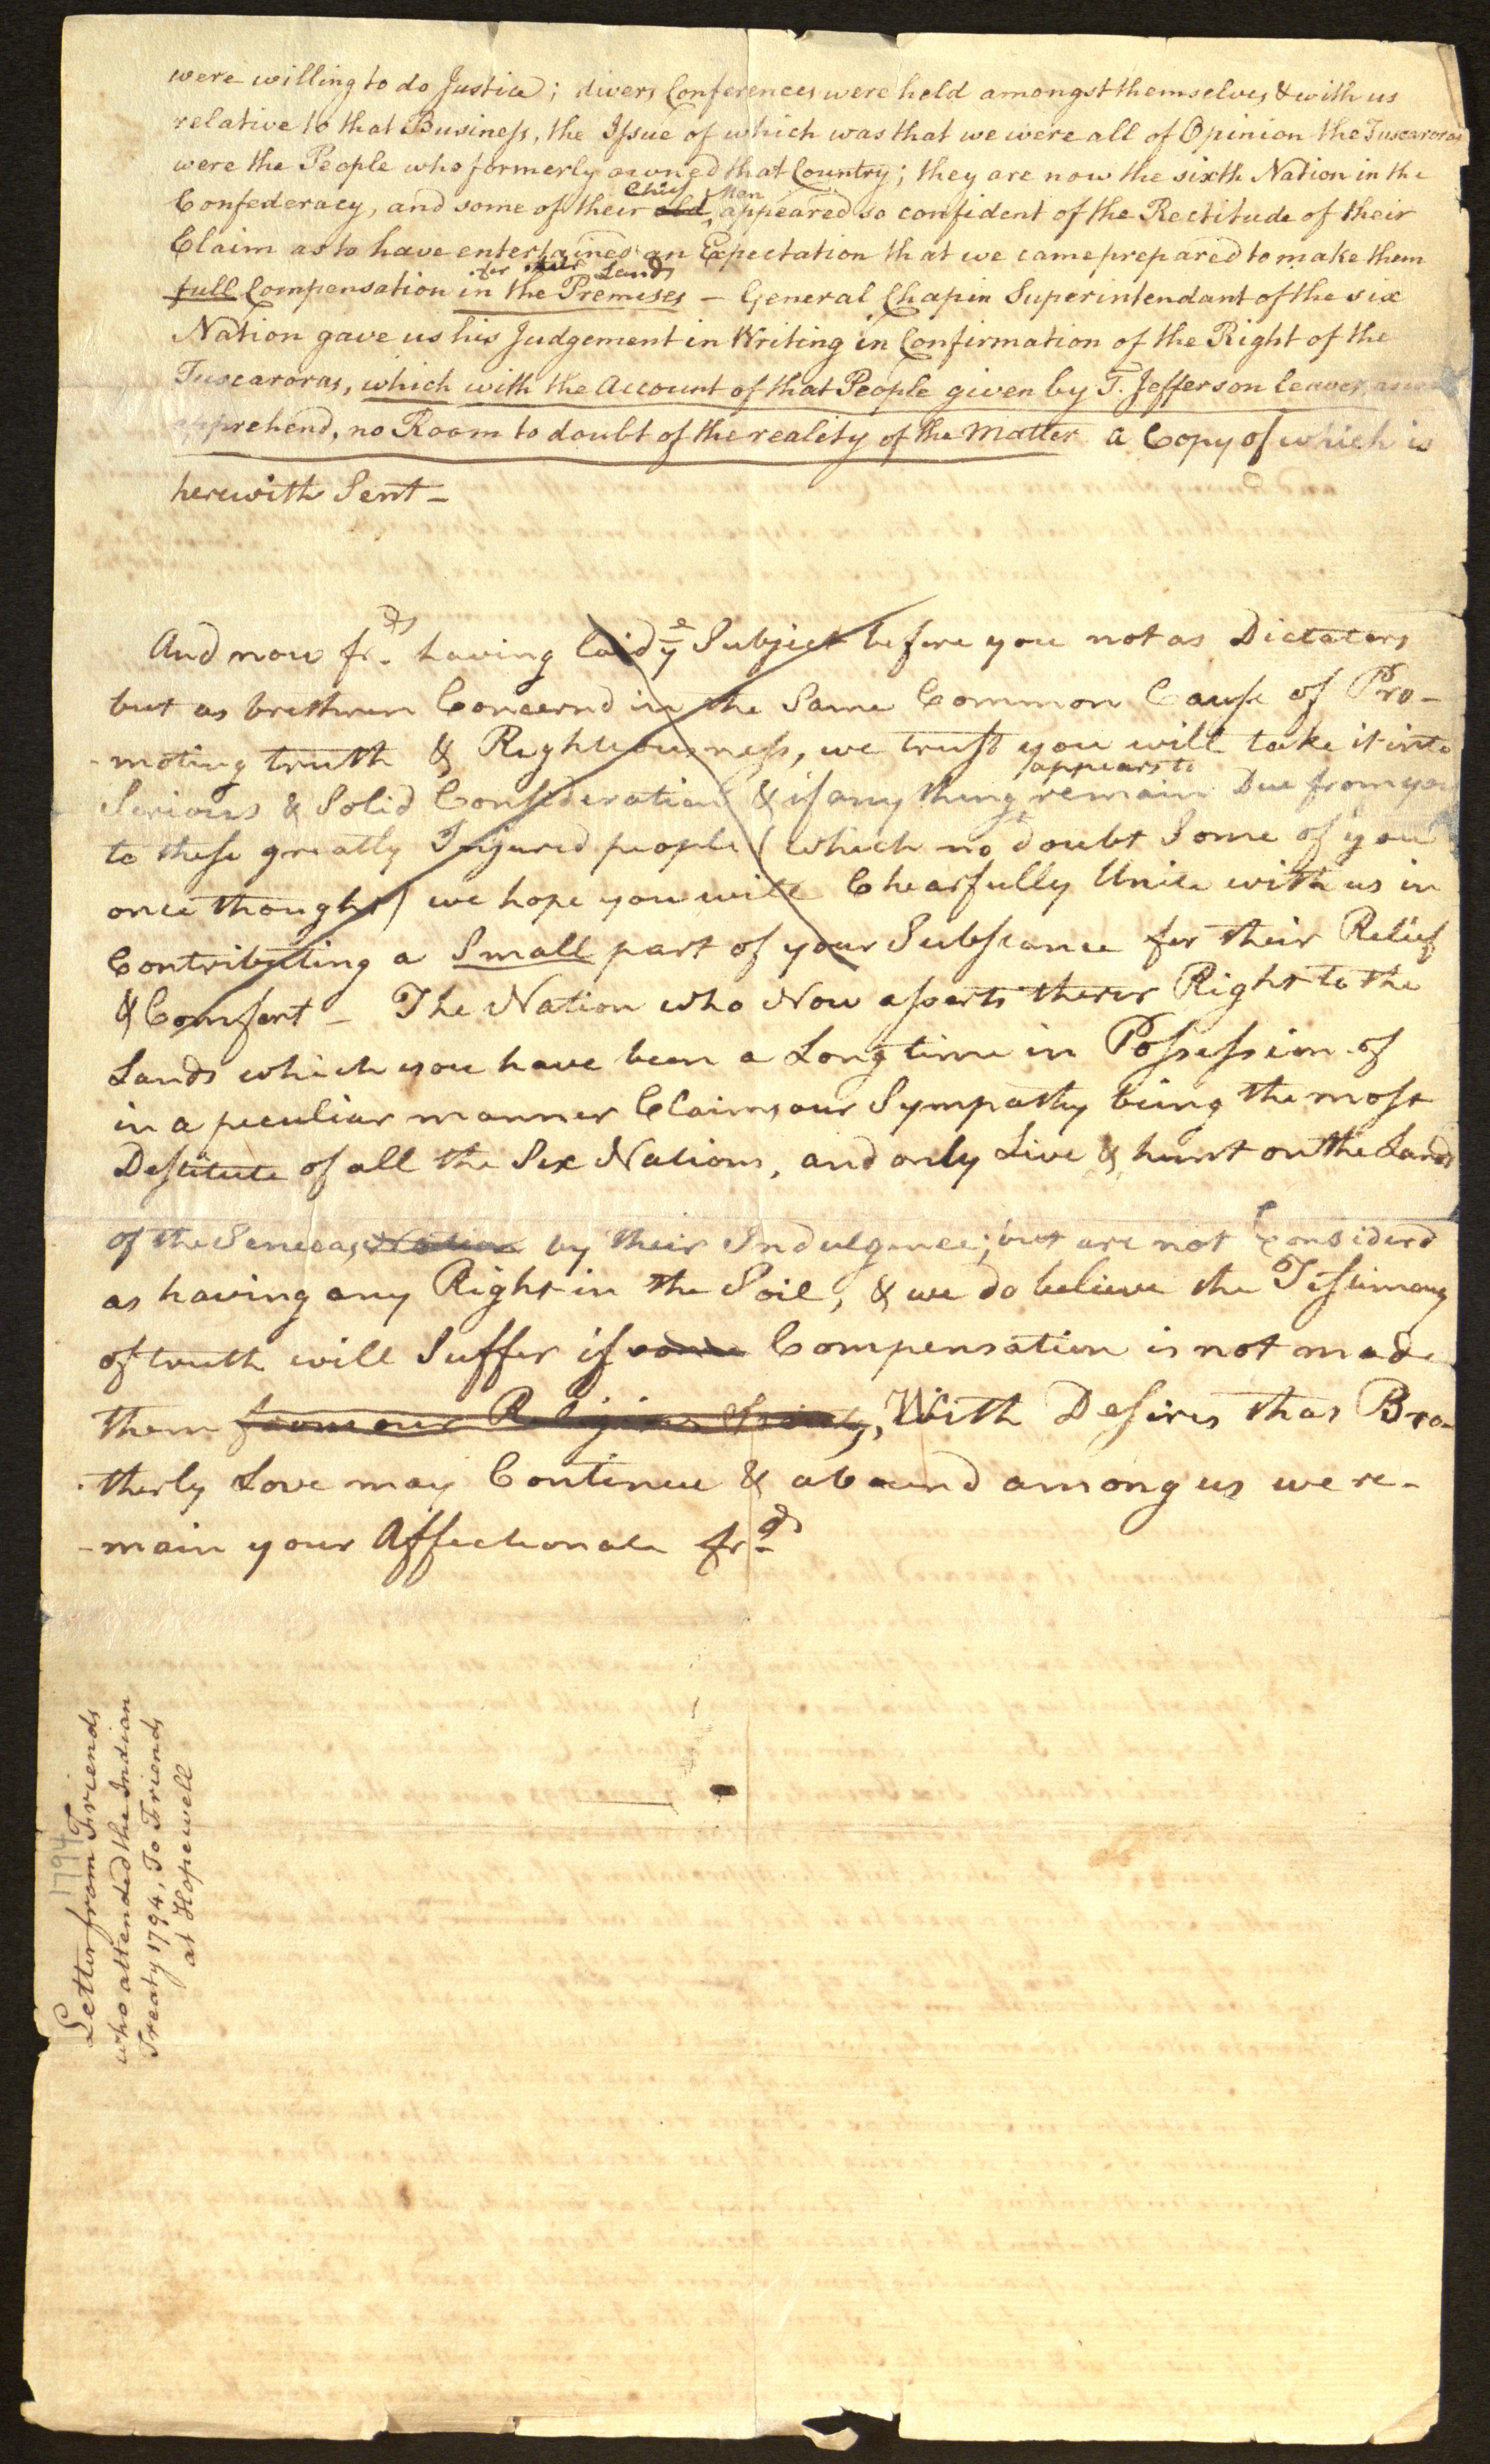 were willing to do Justice; divers Conferences were held amongst themselves, & with us
relative to that Business, the Issue of which was that we were all of Opinion the Tuscaroras
were the People who formerly owned that Country; they are now the sixth Nation in the
Chief Men
Confederacy, and some of their old, appeared so confident of the Rectitude of their
Claim as to have entertained an Expectation that we came prepared to make them
for their Lands
full Compensation in the Premises — General Chapin Superintendant of the six
Nation gave us his Judgement in Writing in Confirmation of the Right of the
Tuscaroras, which with the Account of that People given by T. Jefferson leaves, as we
apprehend, no Room to doubt of the reality of the Matter a Copy of which is
herewith Sent —
And now frds having laid ye Subject before you not as Dictators
but as brethren Concernd in the Same Common Cause of Pro-
-moting truth & Righteousness, we trust you will take it into
appears to
Serious & Solid Consideration & if any thing remain Due from you
to these greatly Injured people (which no doubt Some of you
once thought) we hope you will Chearfully Unite with us in
Contributing a Small part of your Substance for their Relief
& Comfort — The Nation who Now asserts their Right to the
Lands which you have been a Long time in Possession of
in a peculiar manner Claims our Sympathy being the most
Destitute of all the Six Nations, and only Live & hunt on the Lands
of the Senecas, Nation by their Indulgence; but are not Considerd
as having any Right in the Soil, & we do believe the Testimony
of truth will Suffer if some Compensation is not made
them from our Religious Society, With Desires that Bro-
-therly Love may Continue & abound among us we re-
-main your Affectionate frds
1794
Letter from Friends
who attended the Indian
Treaty 1794, To Friends
at Hopewell